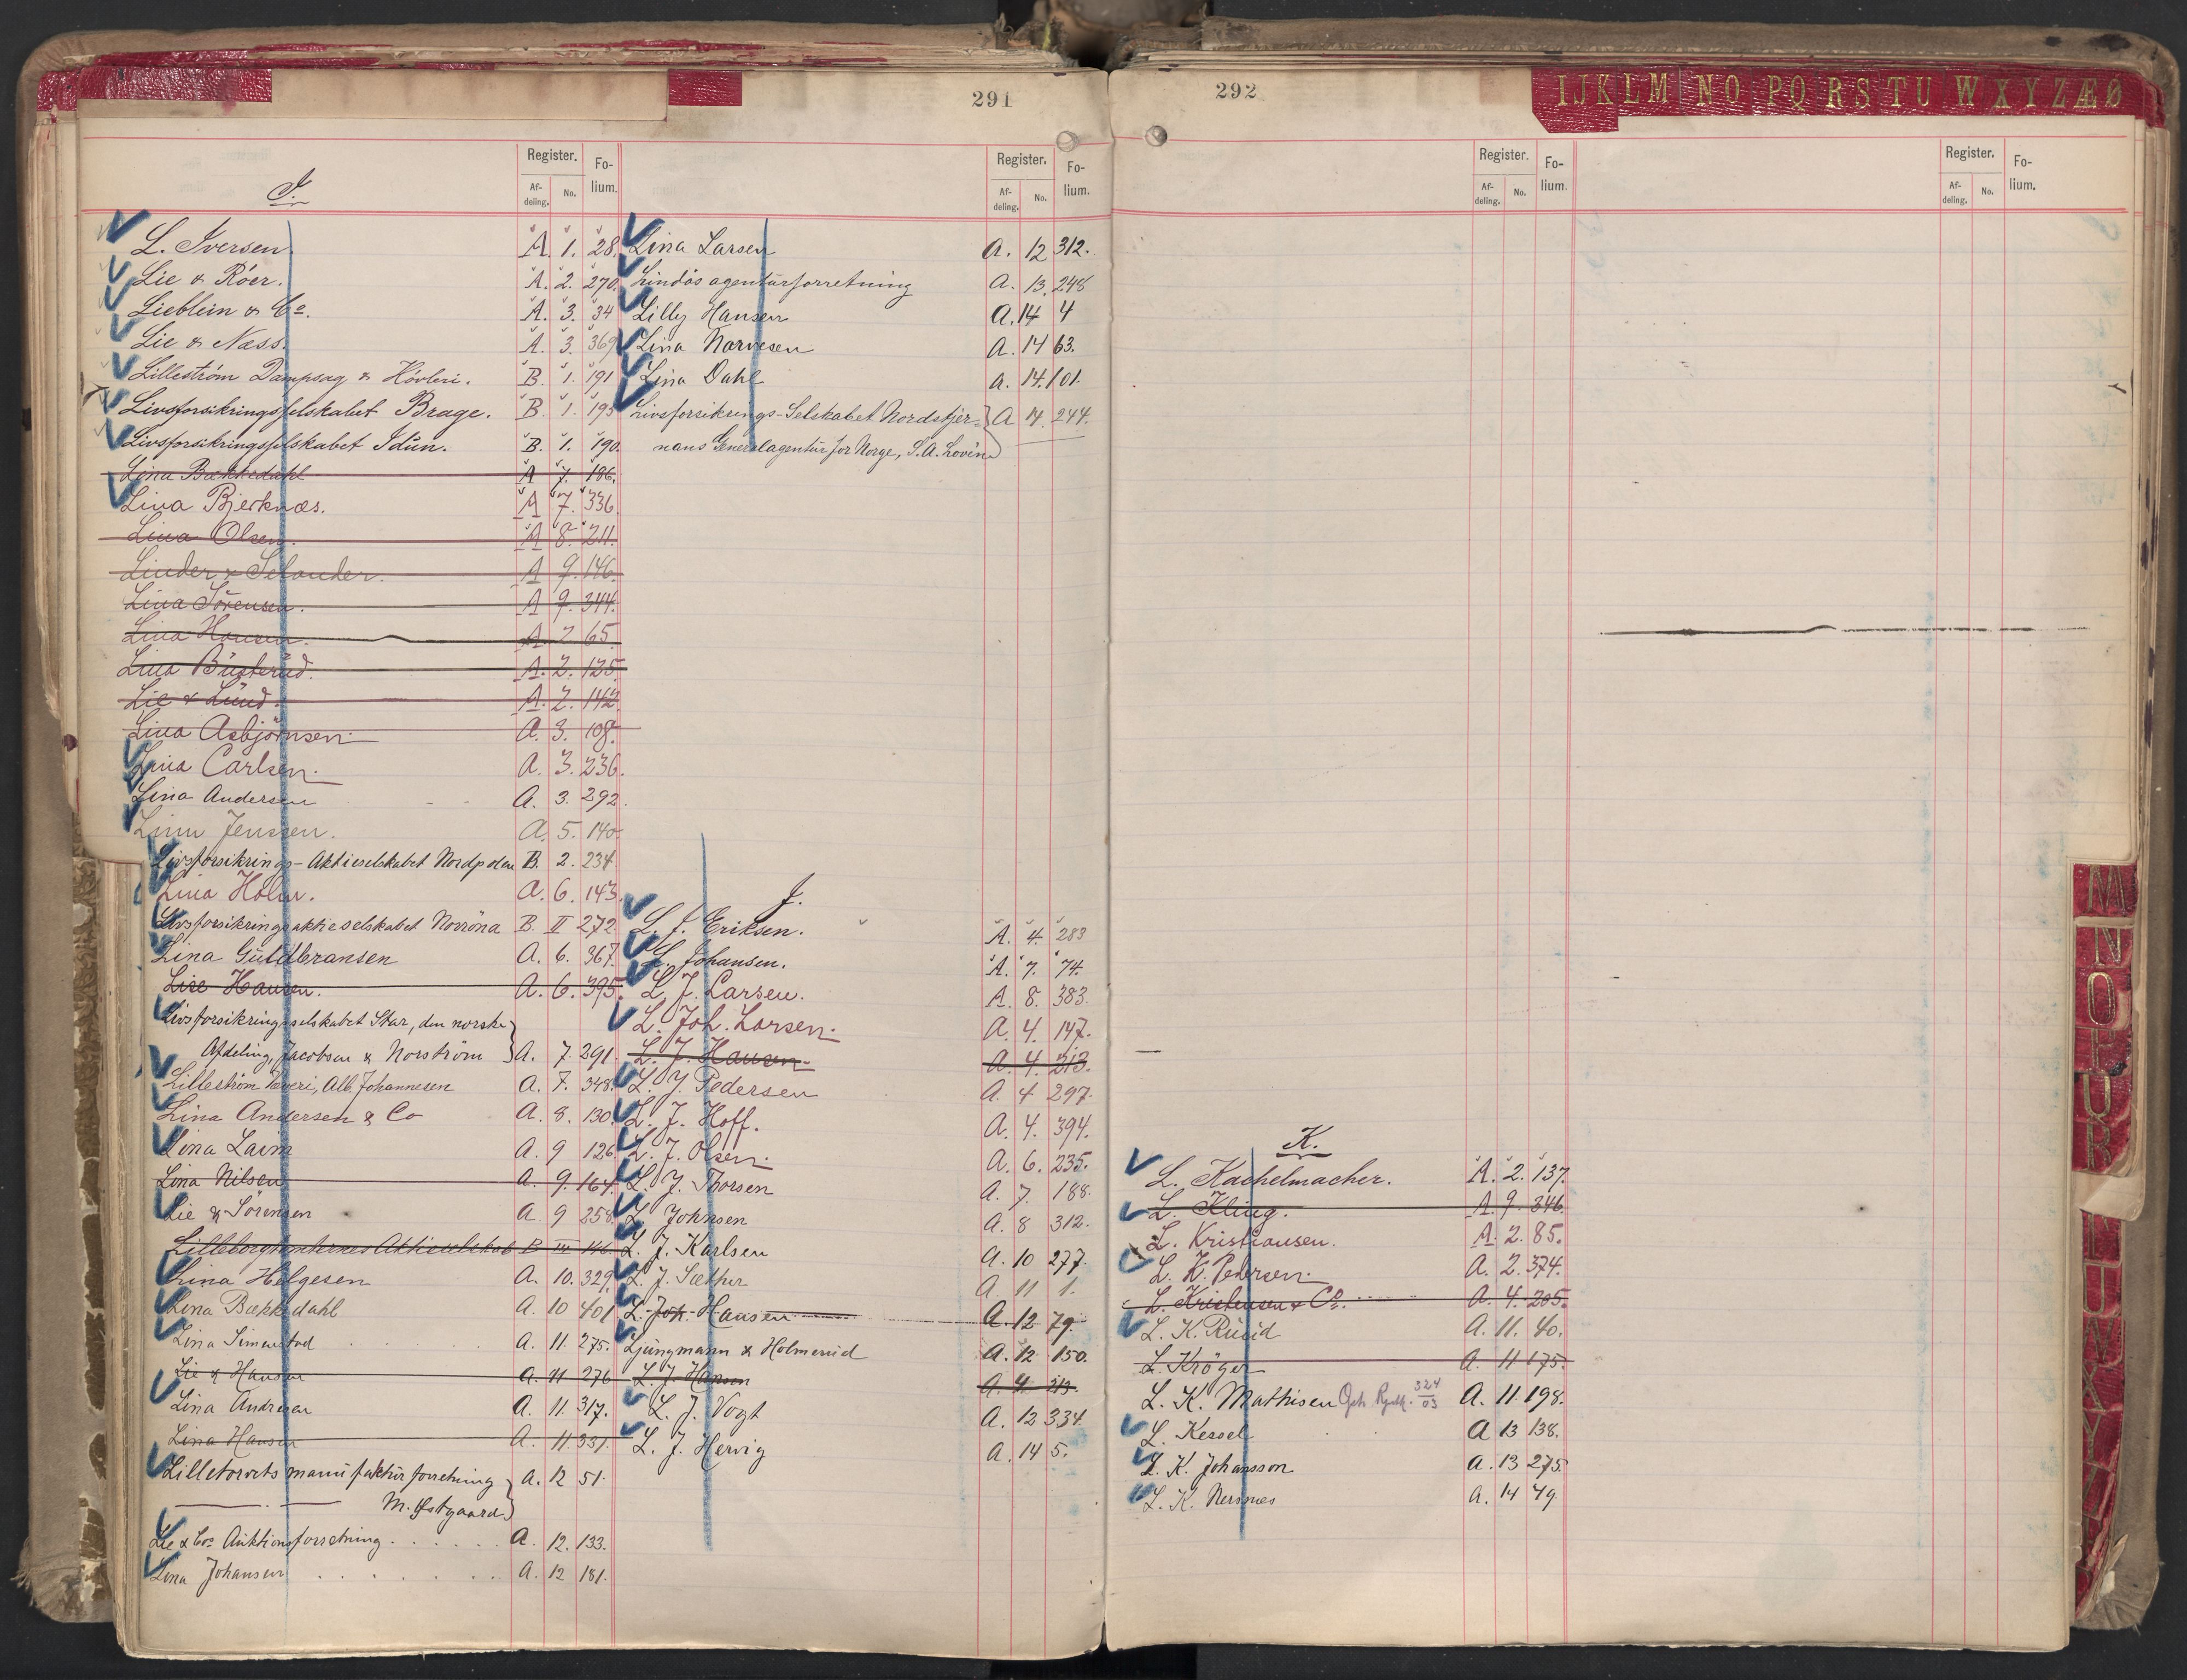 291
Register. Fo-
Af- No. lium.
deling.
I.
L. Iversen A. 1. 28.
Lie & Röer. A. 2. 270.
Lieblein & Co. A. 3. 34
Lie & Næss. A. 3. 369
Lilleström Dampsag & Hövleri. B. 1. 191
Livsforsikringsselskabet Brage. B. 1. 195
Livsforsikringsselskabet Idun. B. 1. 190.
Lina Bækkedahl A 7. 186.
Lina Bjerknæs. A 7. 336
Lina Olsen. A 8. 211.
Linder & Selander. A 9. 146.
Lina Sörensen. A 9. 344.
Lina Hansen. A. 2 65
Lina Büsterud. A. 2. 125.
Lie & Lund. A. 2. 142.
Lina Asbjörnsen A. 3. 108.
Lina Carlsen. A. 3. 236.
Lina Andersen A. 3. 292.
Linn Jenssen. A. 5. 140.
Livsforsikrings-Aktieselskabet Nordpolen B. 2. 234
Lina Holm. A. 6. 143
Livsforsikringsaktieselskabet Norröna B. II 272
Lina Guldbransen A. 6. 367.
Lise Hansen. A. 6. 395.
Livsforsikringsselskabet Skar, den norske
Afdeling, Jacobsen & Norström A. 7. 291.
Lilleström Væveri, Alb. Johannesen A. 7. 348.
Lina Andersen & Co A. 8. 130
Lina Laim A. 9 126
Lina Nilsen A. 9. 164.
Lie & Sörensen A 9 258
Lilleborg Aktieselskab B III 146
Lina Helgesen A. 10. 329.
Lina Bækkedahl A. 10 401
Lina Simenstad A. 11. 275.
Lie & Hansen A. 11 276
Lina Andresen A. 11. 317.
Lina Hansen A. 11. 331.
Lilletorvets manufakturforretning
M. Østgaard A. 12 51.
Lie & Cos Auktionsforretning A. 12. 133.
Lina Johansen A. 12 181.
Register. Fo-
Af- No. lium.
deling.
Lina Larsen A. 12 312.
Lindös agenturforretning A. 13. 248
Lilly Hansen A. 14 4
Lina Narvesen A. 14 63.
Lina Dahl A. 14. 101.
Livsforsikrings-Selskabet Nordstjer- A 14. 244.
nans Generalagentur for Norge, S. A. Lovén
J.
L. J. Eriksen. A. 4. 283
L. Johansen. A. 7. 74.
L. J. Larsen. A 8. 383.
L. Joh. Larsen. A. 4. 147.
L. J. Hansen. A. 4. 313.
L. J. Pedersen A. 4 297.
L. J. Hoff. A. 4. 394.
L. J. Olsen. A. 6. 235.
L. J. Thorsen A. 7. 188.
L. Johnsen A. 8 312.
L. J. Karlsen A. 10 277.
L. J. Sæther A. 11 1.
L. Joh. Hansen A. 12 79.
Ljüngmann & Holmerud A. 12 150.
L. J. Hansen A. 4. 313.
L. J. Vogt A. 12 334
L. J. Hervig A. 14 5.
292
IJKLM NO PQ RS TU W X Y Z Æ Ø
Register. Fo-
Af- No. lium.
deling.
K.
L. Kachelmacher. A. 2. 137.
L. Kling. A 9. 346
L. Kristiansen. A. 2. 85.
L. K. Pedersen. A. 2. 374.
L. Kristensen & Co. A. 4. 205.
L. K. Ruud A. 11. 40.
L. Kröger A. 11 175.
L. K. Mathisen 324/03 A. 11. 198.
L. Kessel A 13 138.
L. K. Johansson A. 13 275
L. K. Nersnes A. 14 49
Register. Fo-
Af- No. lium.
deling.